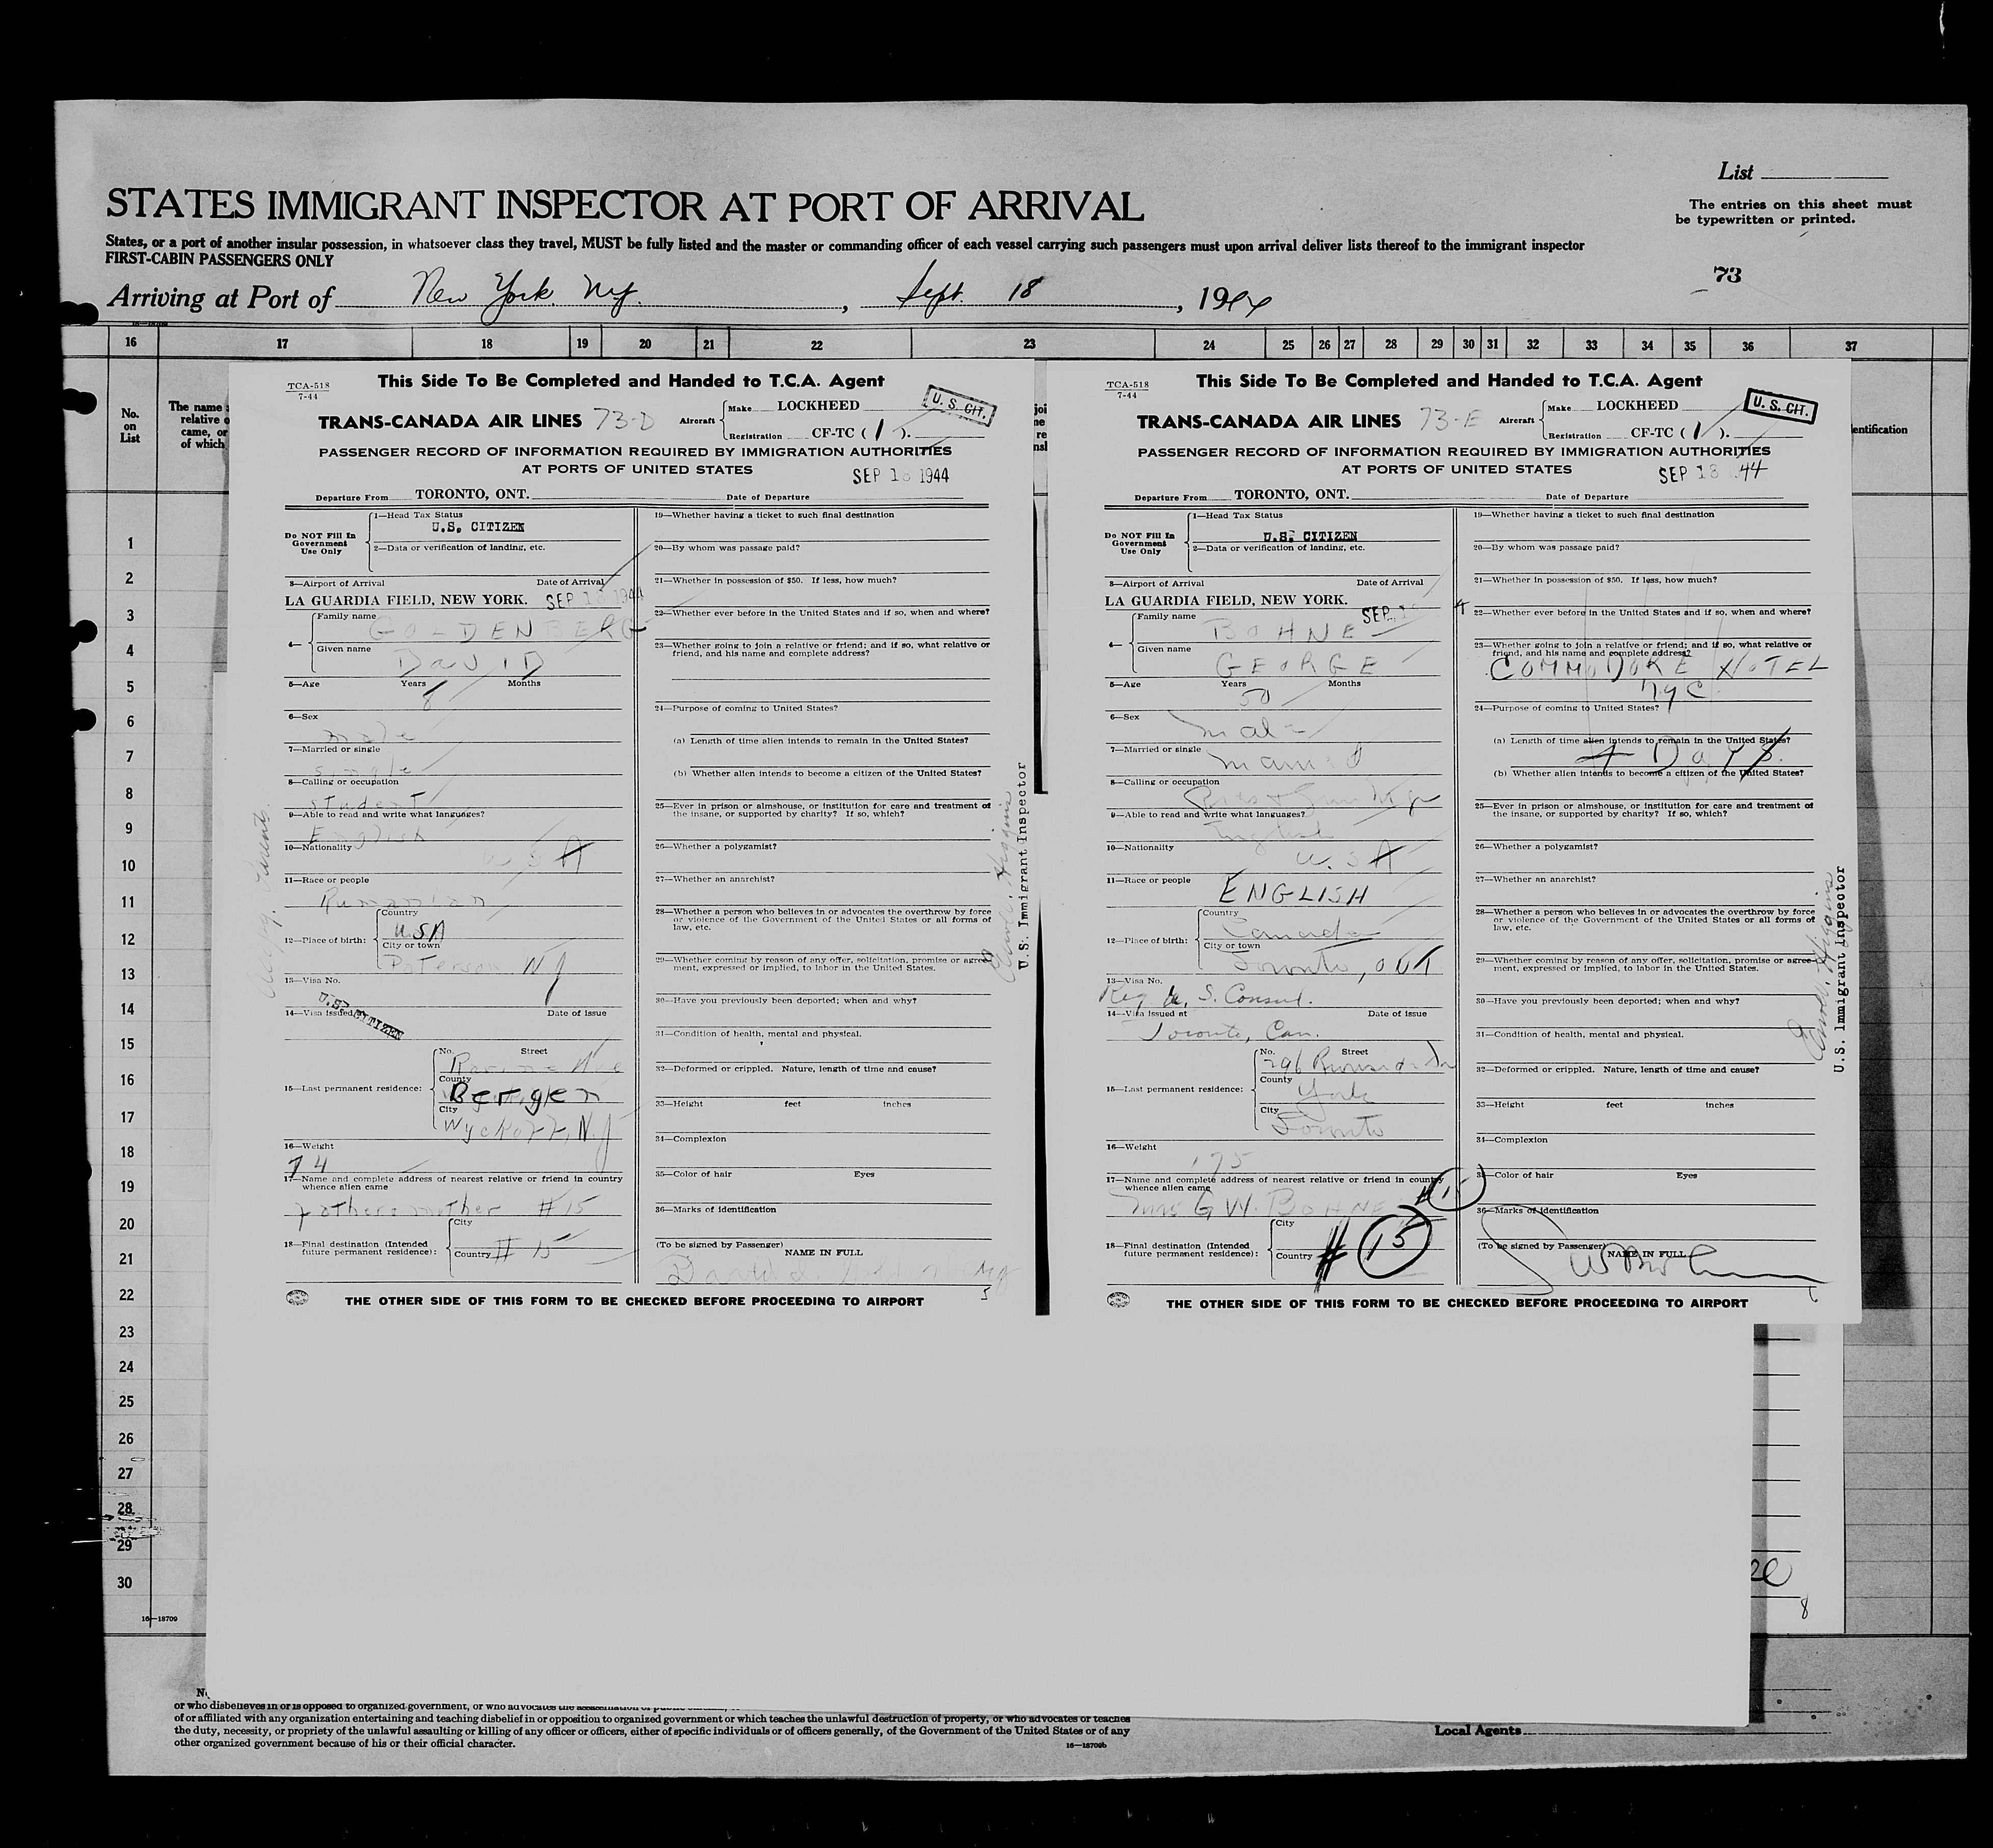 List
STATES IMMIGRANT INSPECTOR AT PORT OF ARRIVAL
The entries on this sheet must
be typewritten or printed.
States, or a port of another insular possession, in whatsoever class they travel, MUST be fully listed and the master or commanding officer of each vessel carrying such passengers must upon arrival deliver lists thereof to the immigrant inspector
FIRST-CABIN PASSENGERS ONLY
73
Arriving at Port of New York Ny., Sept. 18, 1944
16 17 18 19 20 21 22 23 24 25 26 27 28 29 30 31 32 33 34 35 36 37
No.
on
List
The name
relative o
came, or
of which
entification
1
2
3
4
5
6
7
8
9
10
11
12
13
14
15
16
17
18
19
20
21
22
23
24
25
26
27
28
29
30
16—18709
TCA-518
7-44
This Side To Be Completed and Handed to T.C.A. Agent
U. S. CIT.
TRANS-CANADA AIR LINES 73-D
Aircraft
Make LOCKHEED
Registration CF-TC ( 1 ).
PASSENGER RECORD OF INFORMATION REQUIRED BY IMMIGRATION AUTHORITIES
AT PORTS OF UNITED STATES
SEP 18 1944
Departure From TORONTO, ONT. Date of Departure
Do NOT Fill In
Government
Use Only
1—Head Tax Status
U.S. CITIZEN
2—Data or verification of landing, etc.
3—Airport of Arrival Date of Arrival
LA GUARDIA FIELD, NEW YORK. SEP 18 1944
4—
Family name
GOLDENBERG
Given name
DAVID
5—Age Years Months
8
6—Sex
male
7—Married or single
single
8—Calling or occupation
student
9—Able to read and write what languages?
English
10—Nationality
USA
11—Race or people
Rumanian
12—Place of birth:
Country
USA
City or town
Paterson NJ
13—Visa No.
U.S. CITIZEN
14—Visa issued Date of issue
15—Last permanent residence:
No. Street
Ave
County
Bergen
City
Wyckoff, N.J
16—Weight
74
17—Name and complete address of nearest relative or friend in country
whence alien came
Father & mother #15
18—Final destination (Intended
future permanent residence):
City
Country # 15
19—Whether having a ticket to such final destination
20—By whom was passage paid?
21—Whether in possession of $50. If less, how much?
22—Whether ever before in the United States and if so, when and where?
23—Whether going to join a relative or friend; and if so, what relative or
friend, and his name and complete address?
24—Purpose of coming to United States?
(a) Length of time alien intends to remain in the United States?
(b) Whether alien intends to become a citizen of the United States?
25—Ever in prison or almshouse, or institution for care and treatment of
the insane, or supported by charity? If so, which?
26—Whether a polygamist?
27—Whether an anarchist?
28—Whether a person who believes in or advocates the overthrow by force
or violence of the Government of the United States or all forms of
law, etc.
29—Whether coming by reason of any offer, solicitation, promise or agree-
ment, expressed or implied, to labor in the United States.
30—Have you previously been deported; when and why?
31—Condition of health, mental and physical.
32—Deformed or crippled. Nature, length of time and cause?
33—Height feet inches
34—Complexion
35—Color of hair Eyes
36—Marks of identification
(To be signed by Passenger)
NAME IN FULL
David
Higgins
U.S. Immigrant Inspector
THE OTHER SIDE OF THIS FORM TO BE CHECKED BEFORE PROCEEDING TO AIRPORT
TCA-518
7-44
This Side To Be Completed and Handed to T.C.A. Agent
U. S. CIT.
TRANS-CANADA AIR LINES 73-E
Aircraft
Make LOCKHEED
Registration CF-TC ( 1 ).
PASSENGER RECORD OF INFORMATION REQUIRED BY IMMIGRATION AUTHORITIES
AT PORTS OF UNITED STATES
SEP 18 44
Departure From TORONTO, ONT. Date of Departure
Do NOT Fill In
Government
Use Only
1—Head Tax Status
U.S. CITIZEN
2—Data or verification of landing, etc.
3—Airport of Arrival Date of Arrival
LA GUARDIA FIELD, NEW YORK. SEP 1
4—
Family name
BOHNE
Given name
GEORGE
5—Age Years Months
50
6—Sex
male
7—Married or single
married
8—Calling or occupation
9—Able to read and write what languages?
English
10—Nationality
U.S.A
11—Race or people
ENGLISH
12—Place of birth:
Country
Canada
City or town
Toronto, ONT
13—Visa No.
Reg U. S. Consul.
14—Visa issued at Date of issue
Toronto, Can.
15—Last permanent residence:
No. Street
296
County
York
City
Toronto
16—Weight
175
17—Name and complete address of nearest relative or friend in country
whence alien came
Mrs G W. BOHNE #15
18—Final destination (Intended
future permanent residence):
City
Country # 15
19—Whether having a ticket to such final destination
20—By whom was passage paid?
21—Whether in possession of $50. If less, how much?
22—Whether ever before in the United States and if so, when and where?
23—Whether going to join a relative or friend; and if so, what relative or
friend, and his name and complete address?
COMMODORE HOTEL
NYC
24—Purpose of coming to United States?
(a) Length of time alien intends to remain in the United States?
4 Days.
(b) Whether alien intends to become a citizen of the United States?
25—Ever in prison or almshouse, or institution for care and treatment of
the insane, or supported by charity? If so, which?
26—Whether a polygamist?
27—Whether an anarchist?
28—Whether a person who believes in or advocates the overthrow by force
or violence of the Government of the United States or all forms of
law, etc.
29—Whether coming by reason of any offer, solicitation, promise or agree-
ment, expressed or implied, to labor in the United States.
30—Have you previously been deported; when and why?
31—Condition of health, mental and physical.
32—Deformed or crippled. Nature, length of time and cause?
33—Height feet inches
34—Complexion
35—Color of hair Eyes
36—Marks of identification
(To be signed by Passenger)
NAME IN FULL
Higgins
U.S. Immigrant Inspector
THE OTHER SIDE OF THIS FORM TO BE CHECKED BEFORE PROCEEDING TO AIRPORT
8
or who disbelieves in or is opposed to organized government, or who advocates the
of or affiliated with any organization entertaining and teaching disbelief in or opposition to organized government or which teaches the unlawful destruction of property, or who advocates or teaches
the duty, necessity, or propriety of the unlawful assaulting or killing of any officer or officers, either of specific individuals or of officers generally, of the Government of the United States or of any
other organized government because of his or their official character.
16—18709b
Local Agents